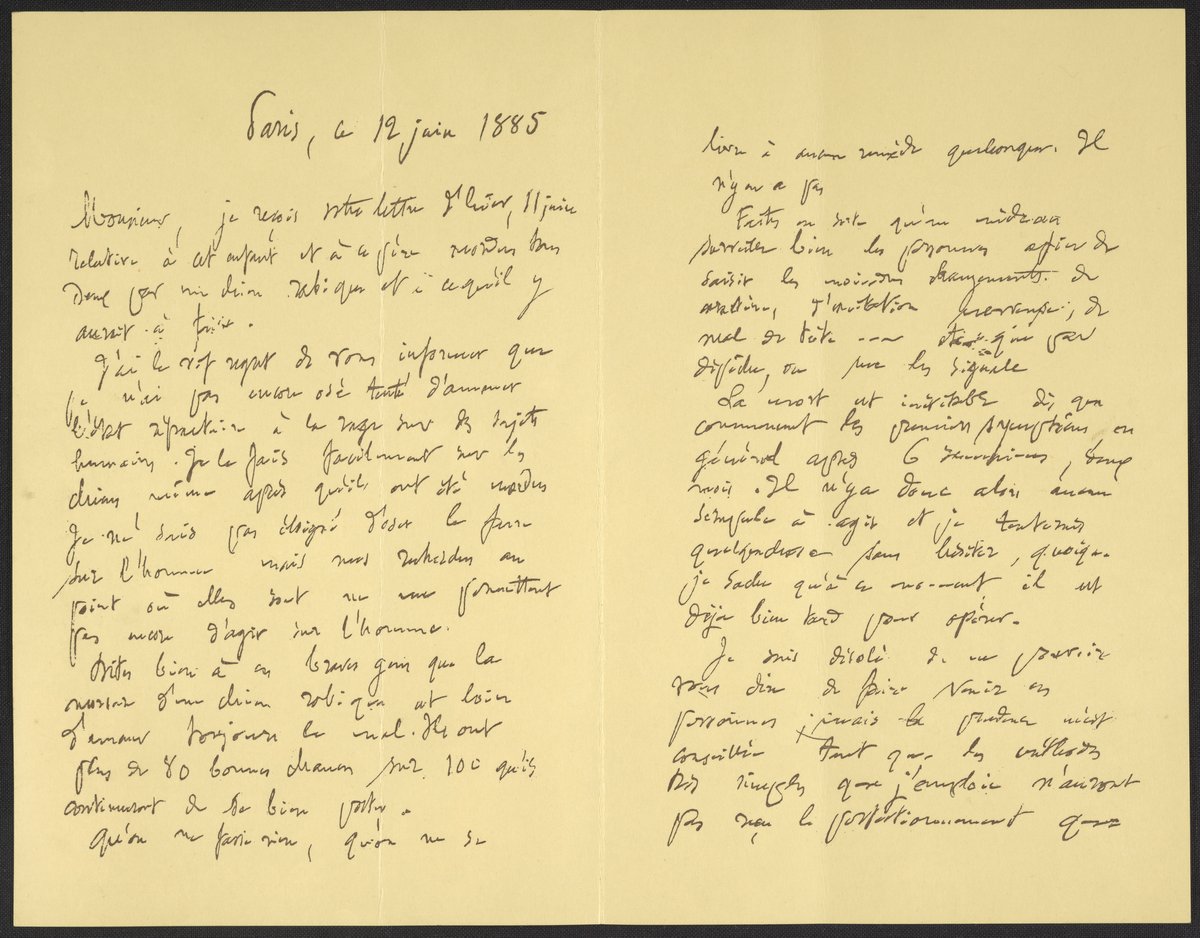 Paris, ce 12 juin 1885
Monsieur, je reçois votre lettre d'hier, 11 juin
relative à cet enfant et à ce père mordus tous
deux par un chien rabique et à ce qu'il y
aurait à faire.
J'ai le vif regret de vous informer que
je n'ai pas encore osé tenté d'amener
l'état réfractaire à la rage sur des sujets
humains. Je le fais facilement sur les
chiens même après qu'ils ont été mordus
Je ne suis pas éloigné d'oser le faire
sur l'homme mais mes recherches au
point où elles sont ne me permettent
pas encore d'agir sur l'homme.
Dites bien à ces braves gens que la
morsure d'un chien rabique est loin
d'amener toujours le mal. Ils ont
plus de 80 bonnes chances sur 100 qu'ils
continueront de se bien porter.
Qu'on ne fasse rien, qu'on ne se
livre à aucun remède quelconque. Il
n'y en a pas
Faites en sorte qu'un médecin
surveille bien les personnes afin de
saisir les moindres changements de
caractère, d'excitation nerveuse, de
mal de tête --- et que par
dépêche, on me les signale
La mort est inévitable dès que
commencent les premiers symptômes en
général après 6 semaines, deux
mois. Il n'y a donc alors aucun
scrupule à agir et je tenterais
quelque chose sans hésiter, quoique
je sache qu'à ce moment il est
déjà bien tard pour opérer.
Je suis désolé de ne pouvoir
vous dire de faire venir ces
personnes mais la prudence m'est
conseillée tant que les méthodes
très simples que j'emploie n'auront
pas reçu le perfectionnement que